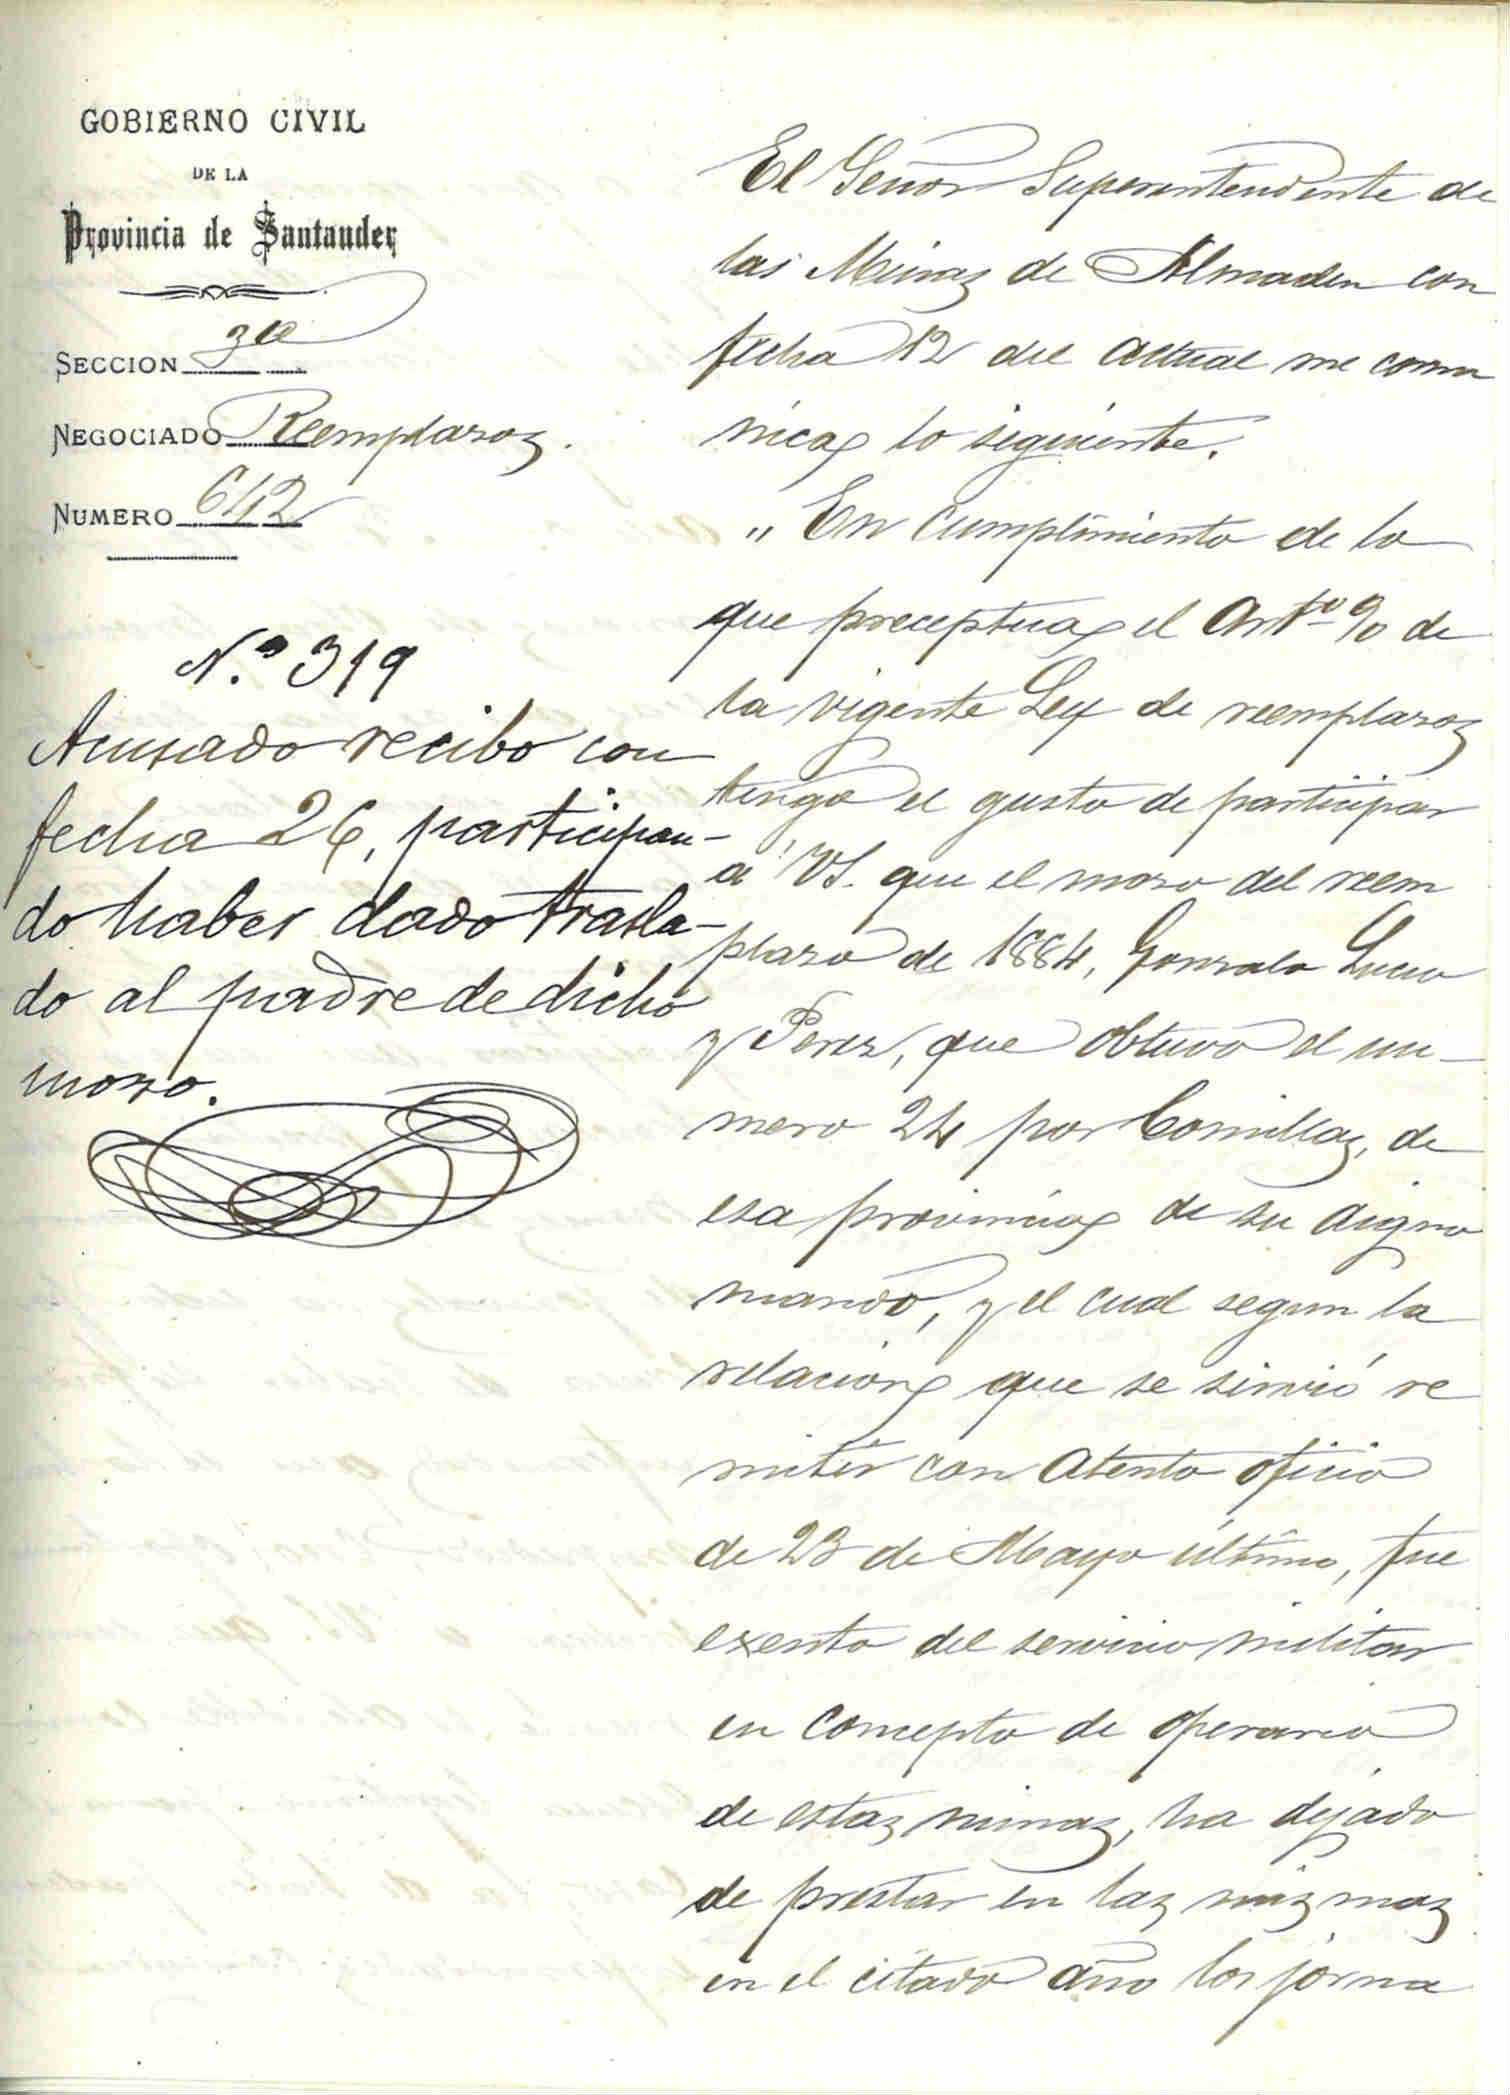 GOBIERNO CIVIL
DE LA
Provincia de Santander
SECCION 3ª
NEGOCIADO Reemplazos.
NUMERO 642
N.º 319
Acusado recibo con
fecha 26, participan-
do haber dado trasla-
do al padre de dicho
mozo.
El Señor Superintendente de
las Minas de Almaden con
fecha 12 del actual me comu
nica lo siguiente.
"En cumplimiento de lo
que preceptua el Artº 90 de
la vigente Ley de reemplazos
tengo el gusto de participar
á VS. que el mozo del reem
plazo de 1884, Gonzalo Lucio
y Perez, que obtuvo el nu-
mero 24 por Comillas, de
esa provincia de su digno
mando, y el cual segun la
relacion que se sirvió re
mitir con atento oficio
de 23 de Mayo último, fue
exento del servicio militar
en concepto de operario
de estas minas, ha dejado
de prestar en las mismas
en el citado año los jorna